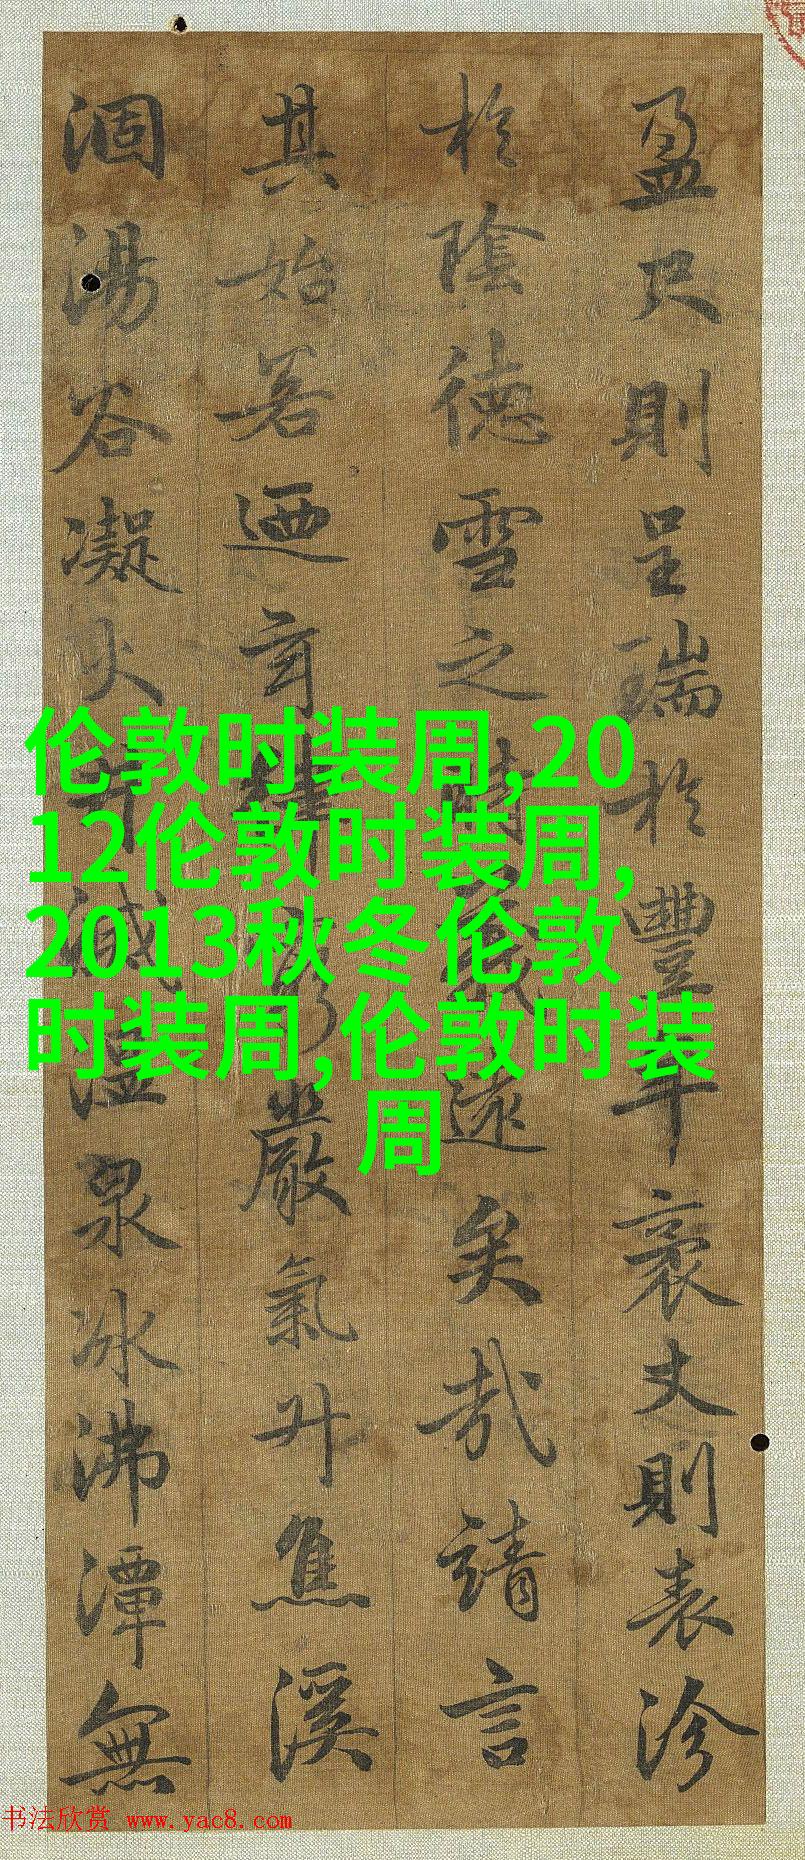 盈尺則呈瑞於豐年袤丈則表沴
於陰德雪之時義遠矣哉請言
其始若迺玄律窮嚴氣升焦溪
涸湯谷凝火井滅溫泉冰沸潭無
伦敦时装周,20
12伦敦时装周,
2013秋冬伦敦
时装周,伦敦时装
周
书法欣赏 www.yac8.com